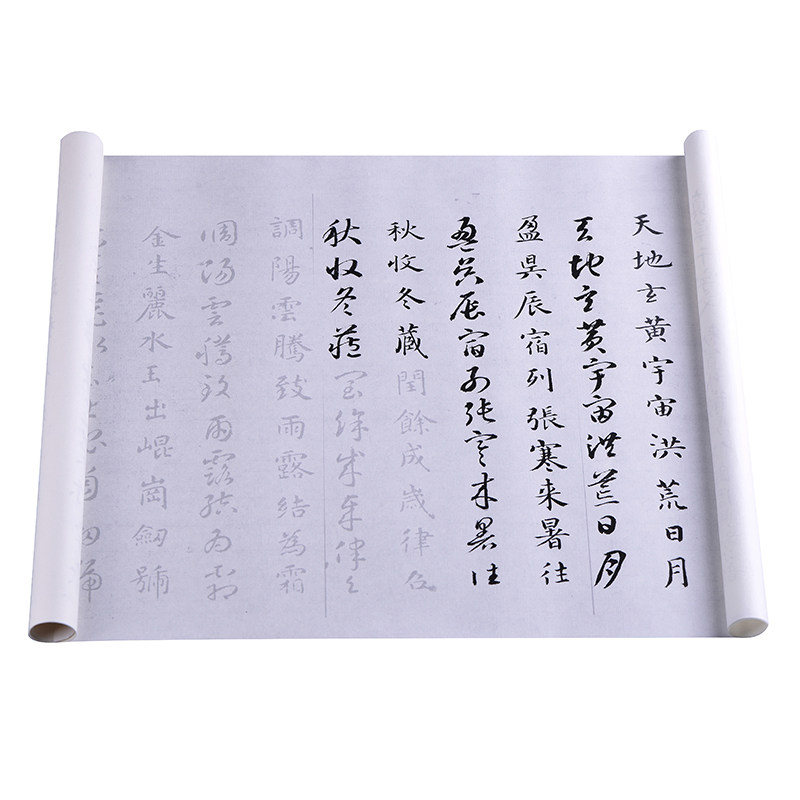 天地玄黃宇宙洪荒日月
天地玄黃宇宙洪荒日月
盈昃辰宿列張寒来暑往
盈昃辰宿列張寒来暑往
秋收冬藏閏餘成歲律呂
秋收冬藏閏餘成歲律呂
調陽雲騰致雨露結為霜
調陽雲騰致雨露結為霜
金生麗水玉出崐崗劒號